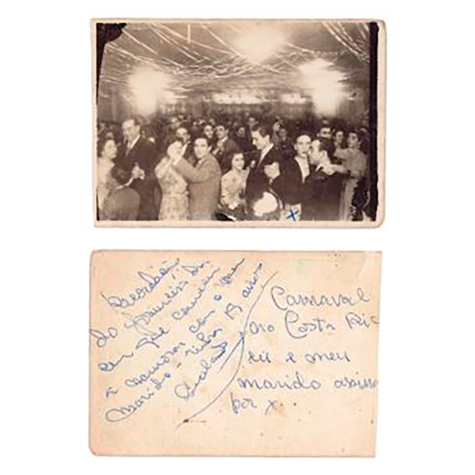 x
Recordação
do primeiro dia
em que comecei
a namorar com o meu
marido - tinha 17 anos
Carnaval
no Costa Ric
eu e meu
marido assina
por x